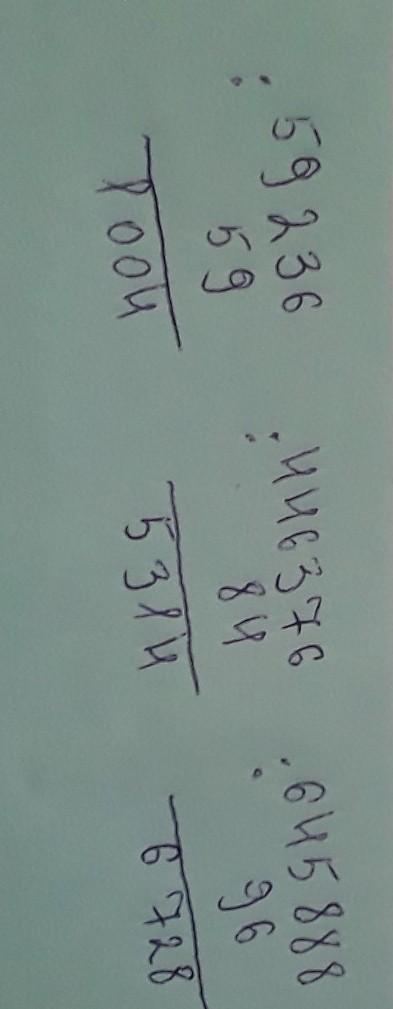 : 59236
59
1004
: 446376
84
5314
: 645888
96
6728